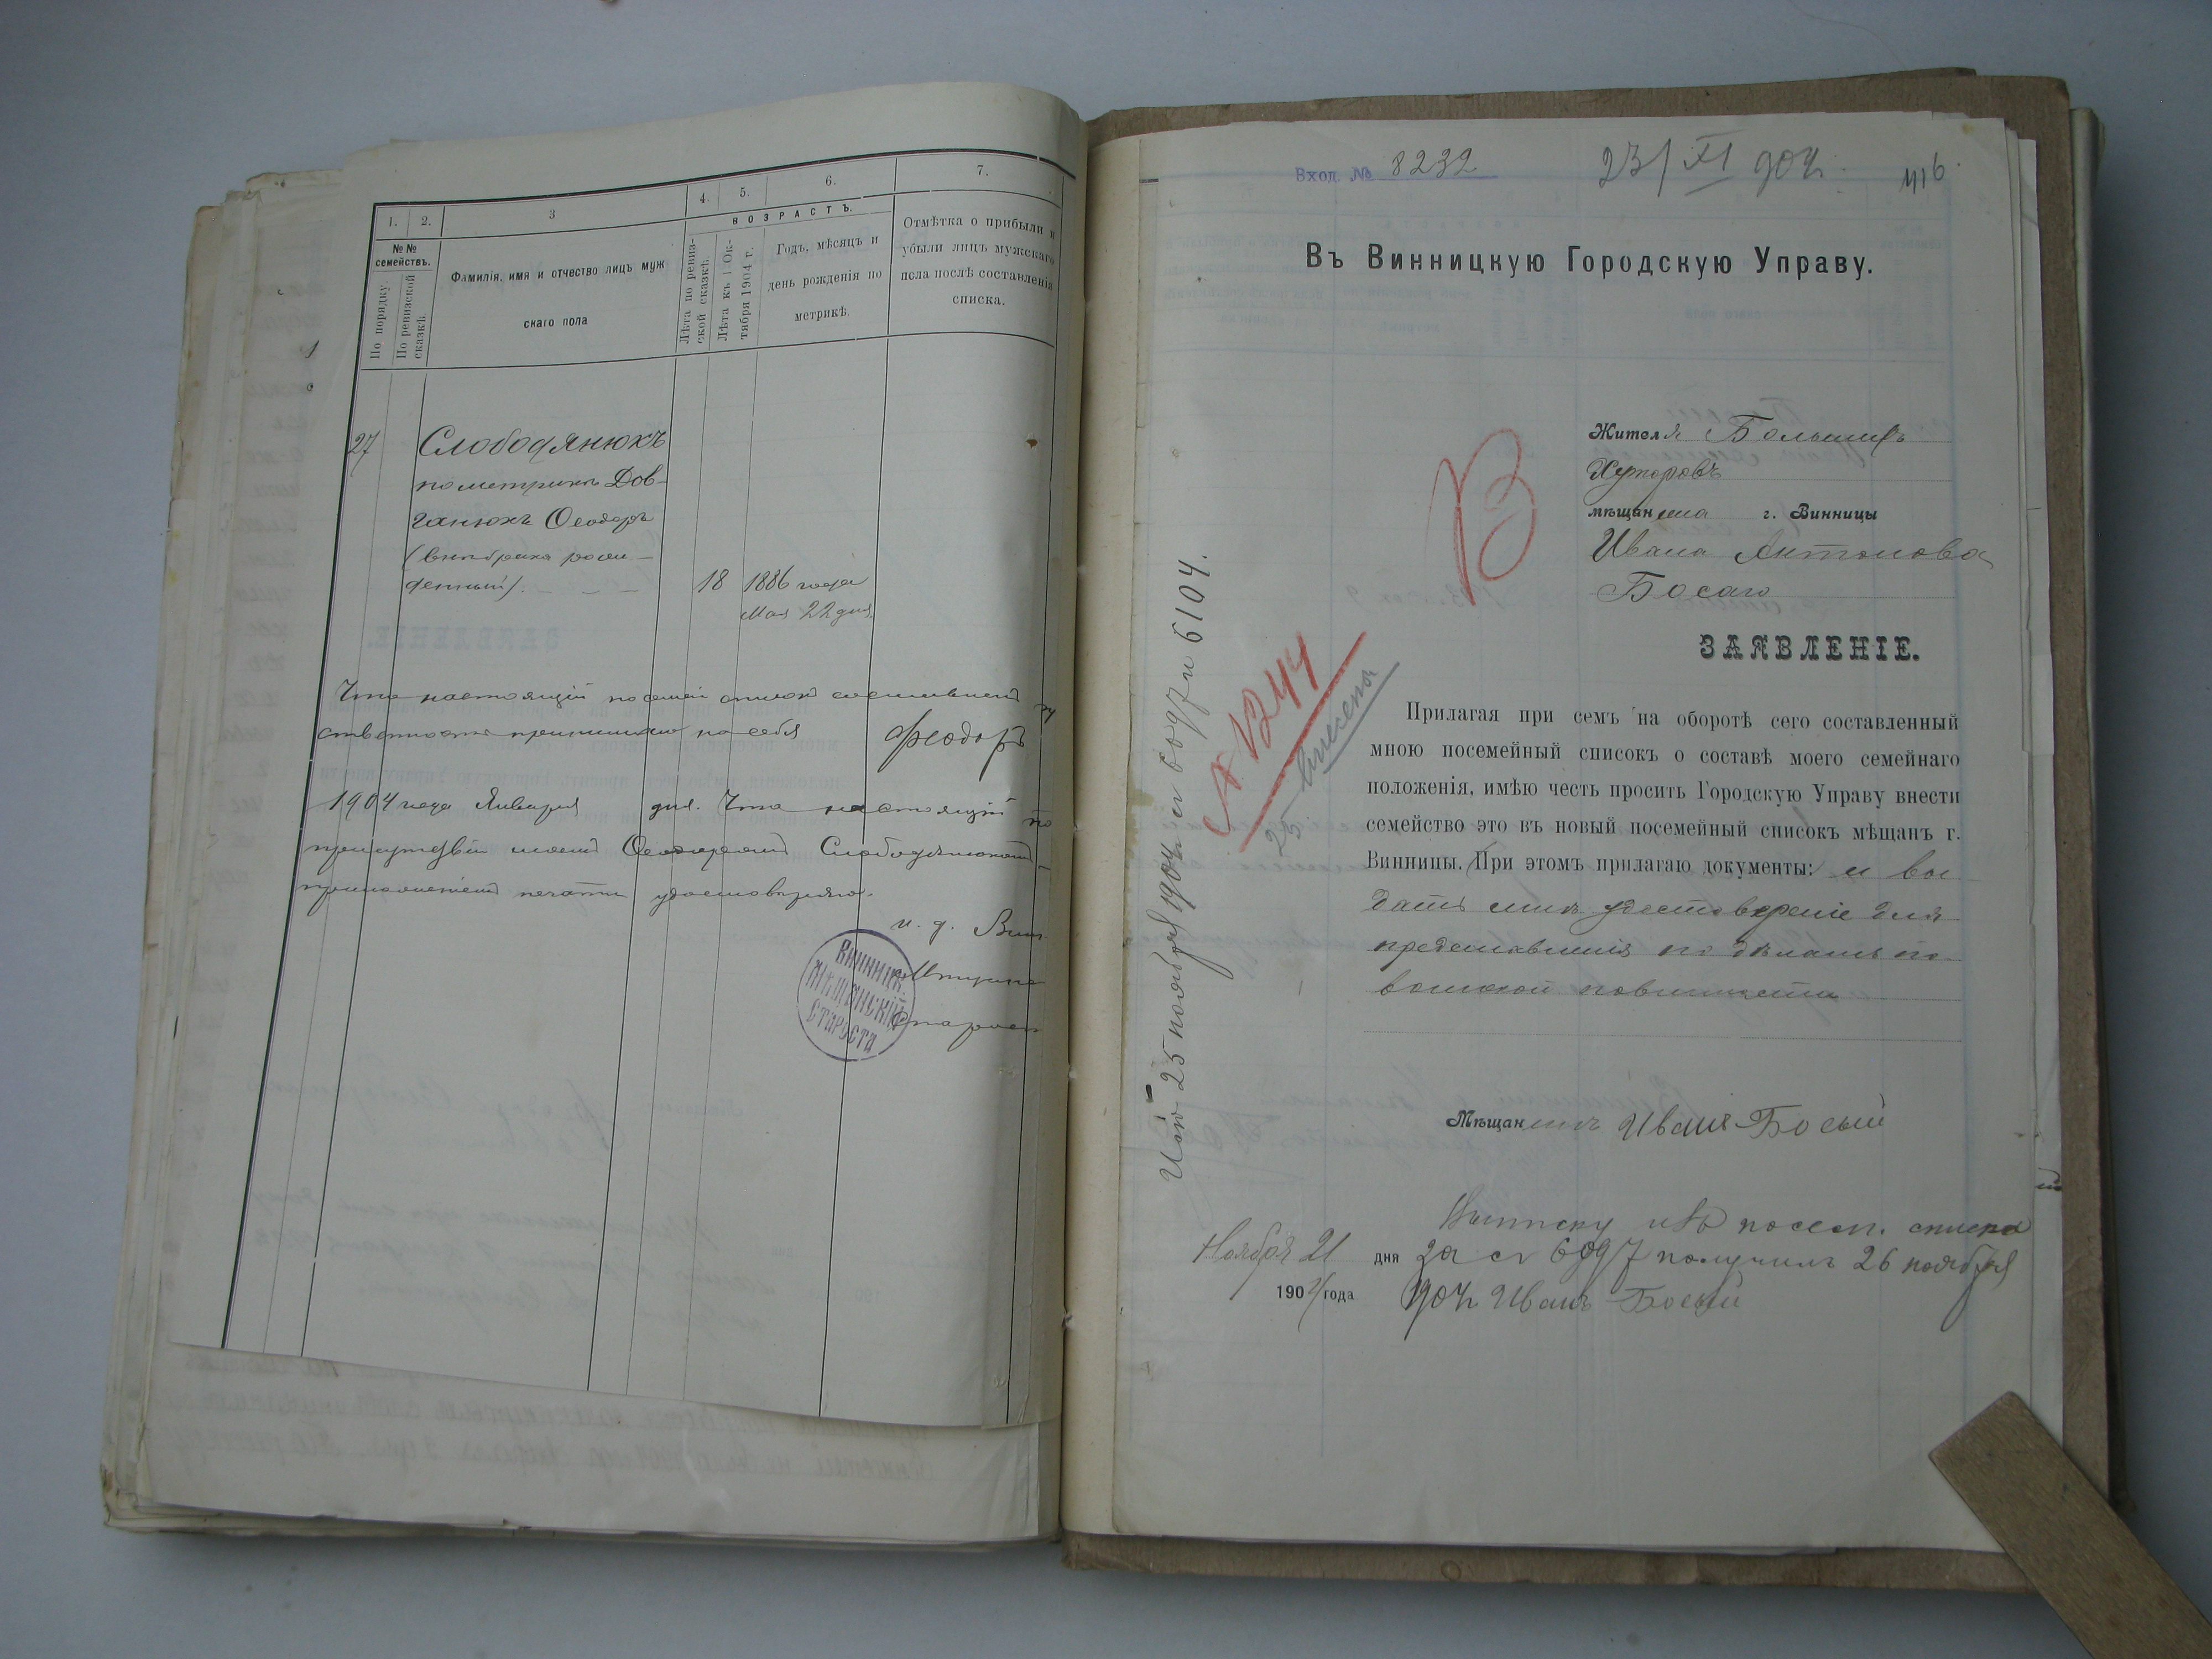 1. 2. 3 4. 5. 6. 7.
№№ семействъ.
По порядку
По ревизской сказкѣ.
Фамилія, имя и отчество лицъ муж
скаго пола
ВОЗРАСТЪ.
Лѣта по ревиз-
ской сказкѣ.
Лѣта къ 1 Ок-
тября 1904 г.
Годъ, мѣсяцъ и
день рожденія по
метрикѣ.
Отмѣтка о прибыли и
убыли лицъ мужскаго
пола послѣ составленія
списка.
27 Слободянюкъ
по метрикѣ Дов-
ганюкъ Ѳеодоръ
(внѣбрачно рож-
денный). 18 1886 года
Мая 22 дня
Что настоящій посем. списокъ
ственность принимаю на себя Феодоръ
1904 года Января дня. Что настоящій по
присутствіи моемъ Ѳеодоромъ Слободянюкомъ
приложеніемъ печати удостовѣряю.
и. д. Вин
Мѣщанс
Старост
Винницк.
Мѣщанскій
Староста
Вход № 8232 23/XI 904 г. 416
Въ Винницкую Городскую Управу.
В
Жителя Большихъ
Хуторовъ
мѣщанина г. Винницы
Ивана Антонова
Босаго
ЗАЯВЛЕНІЕ.
Прилагая при семъ на оборотѣ сего составленный
мною посемейный списокъ о составѣ моего семейнаго
положенія, имѣю честь просить Городскую Управу внести
семейство это въ новый посемейный списокъ мѣщанъ г.
Винницы. При этомъ прилагаю документы: и вы
дать мнѣ удостовѣреніе для
представленія по дѣламъ по
воинской повинности
25 ноября 1904 6097 и 6104.
1244
25
Мѣщанинъ Иванъ Босый
Выписку изъ посем. списка
Ноября 21 дня за № 6097 получилъ 26 ноября
1904 года 904 г. Иванъ Босый